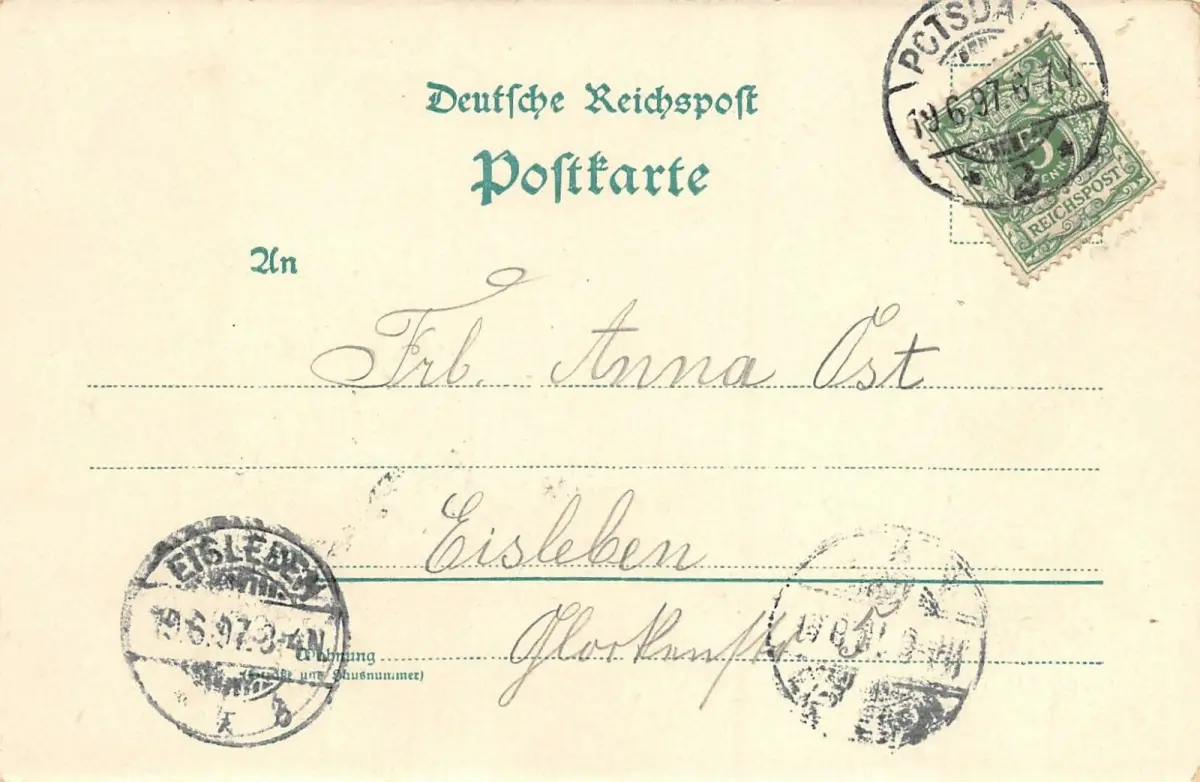 Deutsche Reichspost
Postkarte
POTSDAM
19.6.97.6-7 V.
2
5
REICHSPOST
An
Frl. Anna Ost
Eisleben
EISLEBEN
19.6.97.3-4N
Glockenstr. 5
Wohnung
(Straße und Hausnummer)